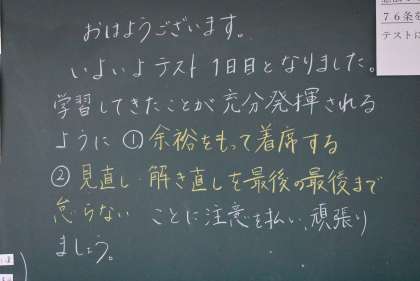 おはようございます。
いよいよテスト1日目となりました。
学習してきたことが充分発揮される
ように①余裕をもって着席する
②見直し・解き直しを最後の最後まで
怠らない ことに注意を払い、頑張り
ましょう。
76条を
テストに